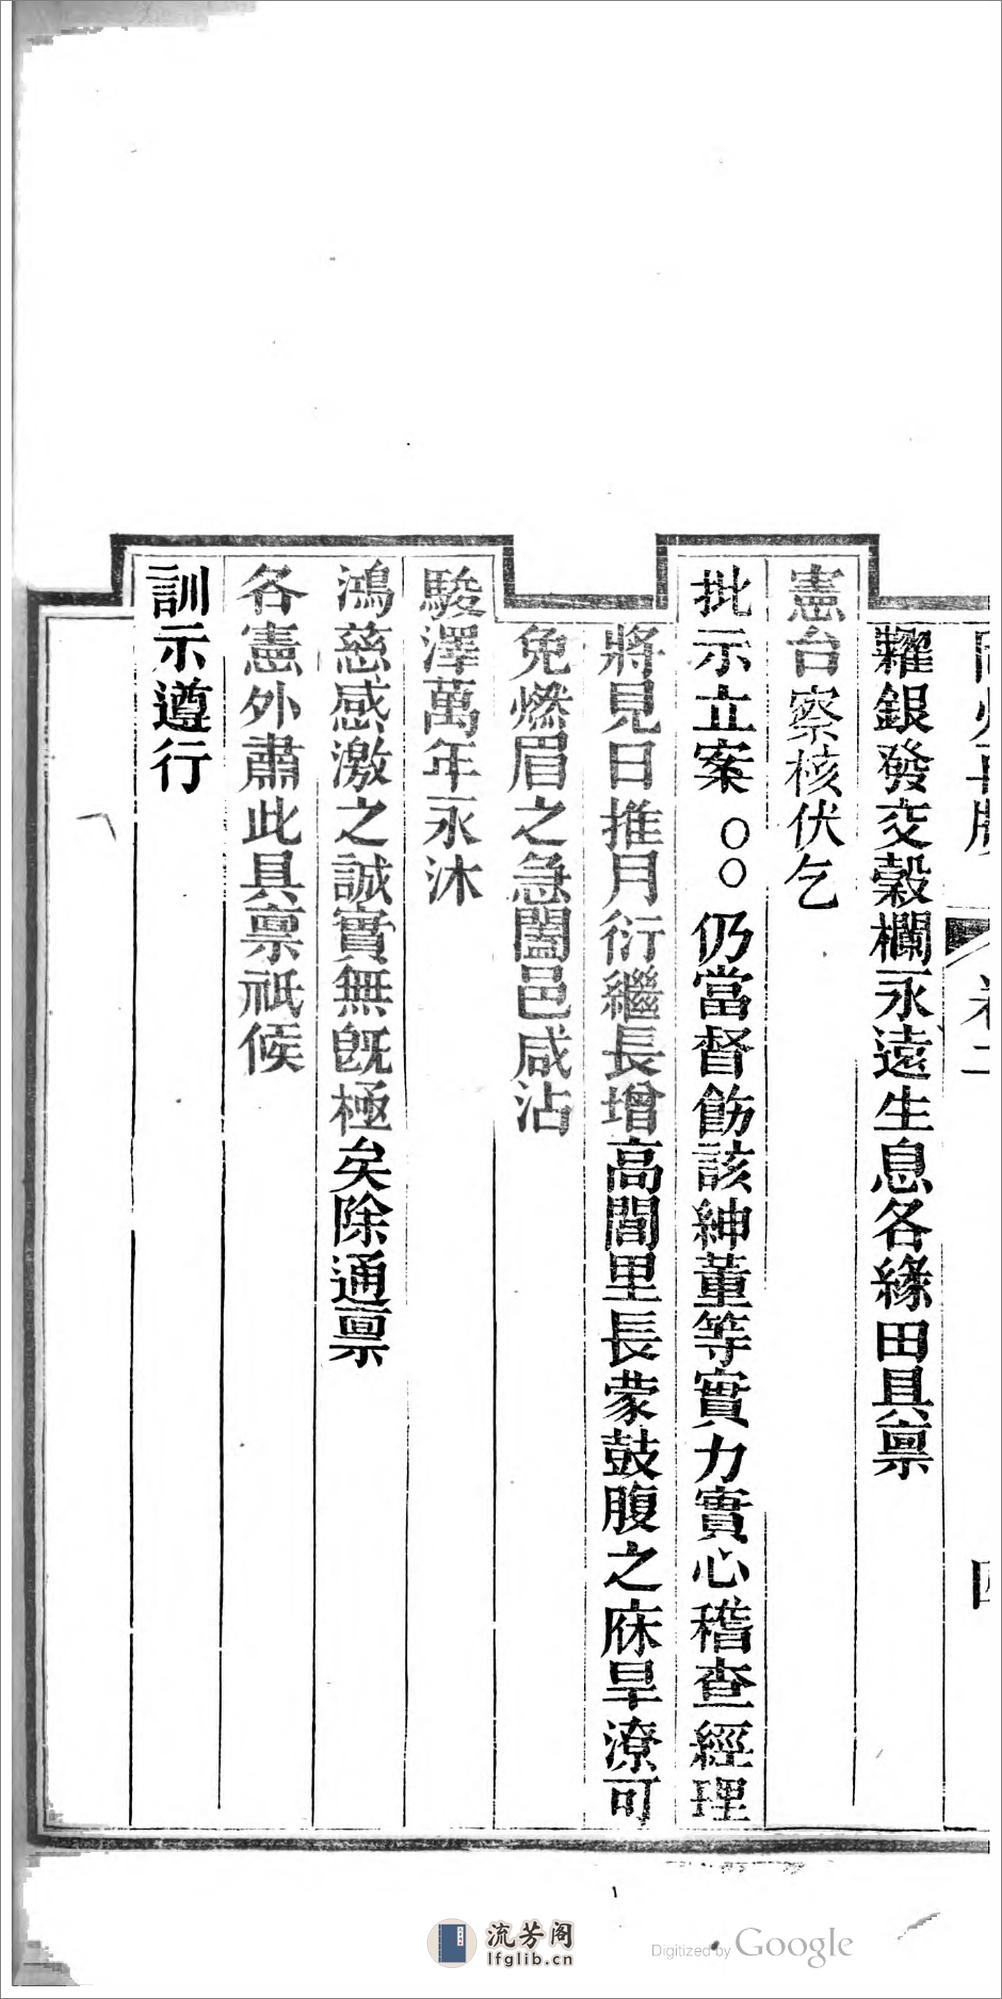 卷二
糶銀發交穀欄永遠生息各緣田具稟
憲台察核伏乞
批示立案○○仍當督飭該紳董等實力實心稽查經理
將見日推月衍繼長增高閭里長蒙鼓腹之庥旱潦可
免燃眉之急闔邑咸沾
駿澤萬年永沐
鴻慈感激之誠實無旣極矣除通稟
各憲外肅此具稟祇候
訓示遵行
流芳阁
lfglib.cn
Digitized by Google